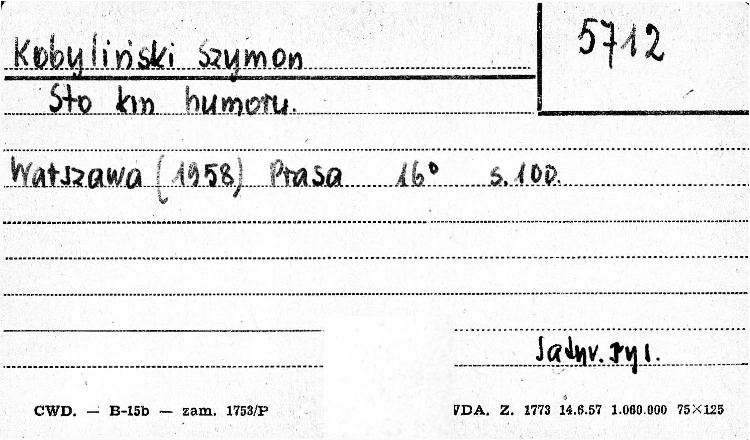 5712
Kobyliński Szymon
Sto kin humoru.
Warszawa (1958) Prasa 16° s. 100.
Satyr. rys.
CWD. — B-15b — zam. 1753/P
VDA. Z. 1773 14.6.57 1.060.000 75×125